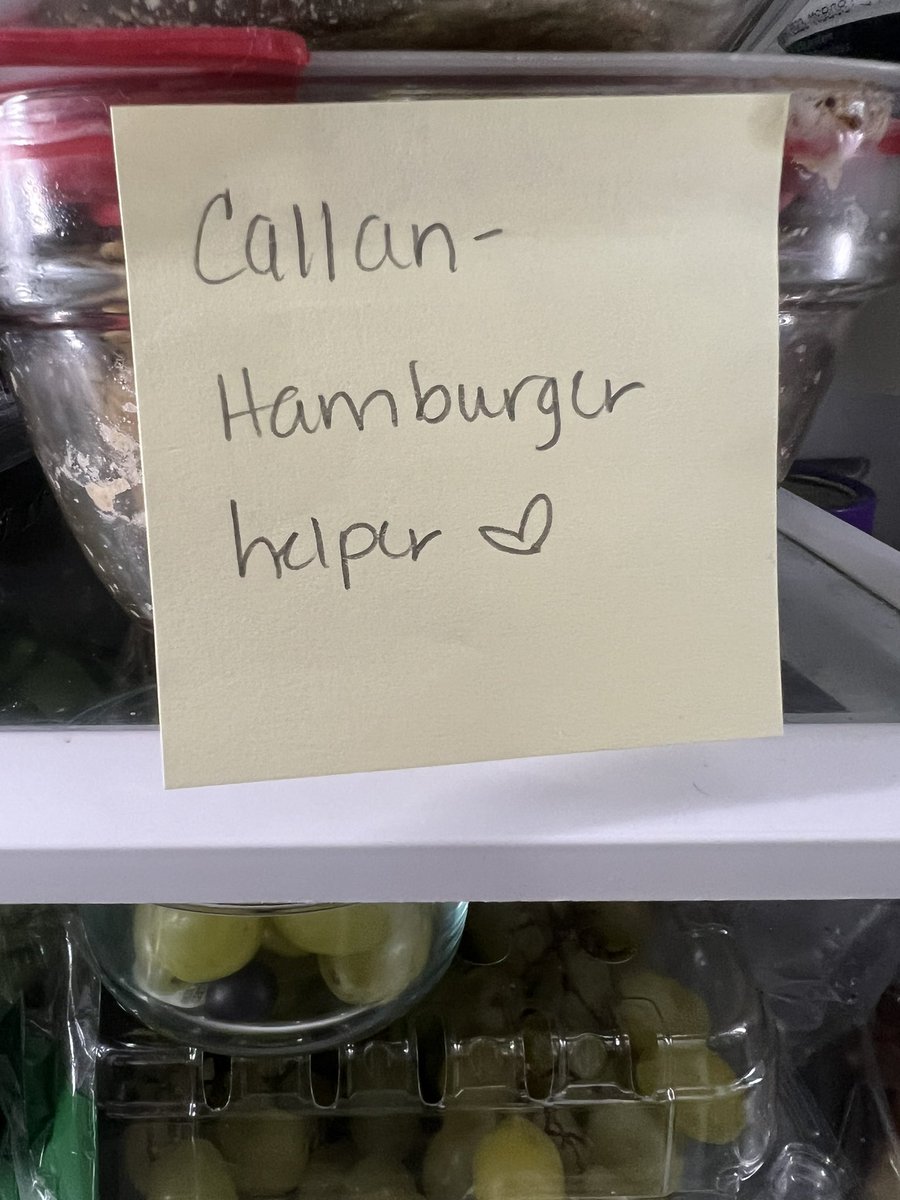 Callan-
Hamburger
helper ♡